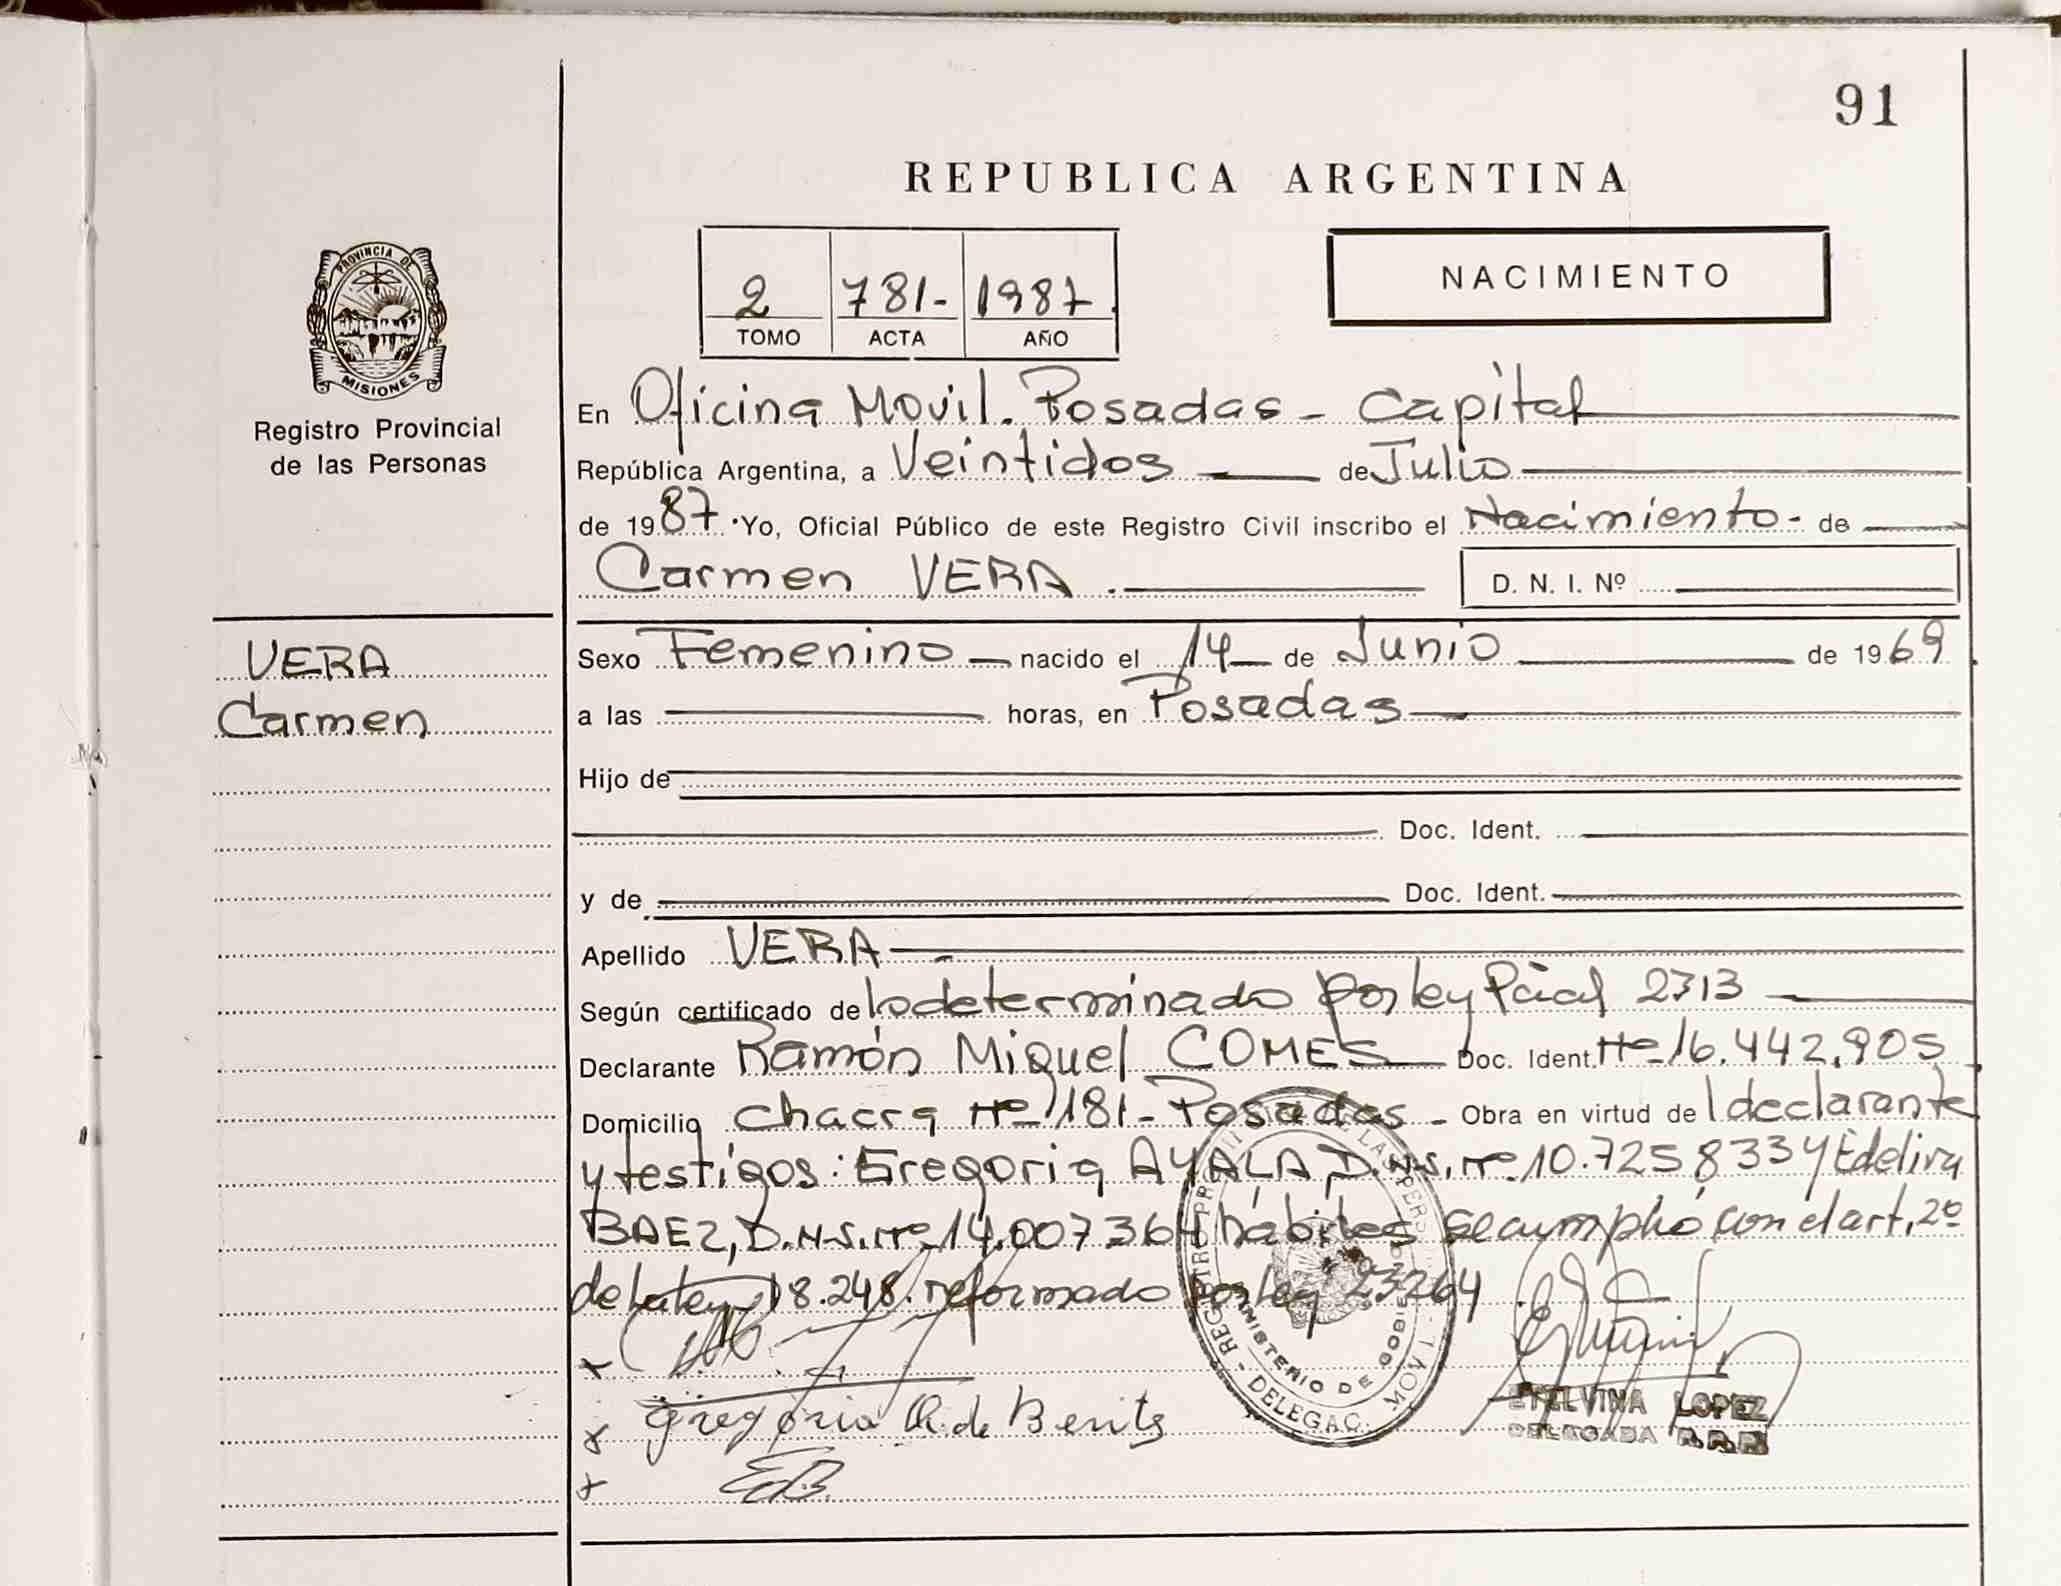 91
REPUBLICA ARGENTINA
2 781- 1987.
TOMO ACTA AÑO
NACIMIENTO
PROVINCIA DE
MISIONES
Registro Provincial
de las Personas
En Oficina Movil. Posadas - Capital
República Argentina, a Veintidos de Julio
de 1987 Yo, Oficial Público de este Registro Civil inscribo el Nacimiento - de
Carmen VERA . D. N. I. Nº
VERA
Carmen
Sexo Femenino nacido el 14 de Junio de 1969
a las horas, en Posadas
Hijo de
Doc. Ident.
y de Doc. Ident.
Apellido VERA
Según certificado de lo determinado por ley Pcial 2713
Declarante Ramón Miguel COMES Doc. Ident. Nº 16.442.905
Domicilio Chacra Nº 181 - Posadas - Obra en virtud de l declarante
y testigos: Gregoria AYALA D.N.I. Nº 10.725833 y Edelira
BAEZ, D.N.I. Nº 14.007364 hábiles se cumplió con el art. 2º
de la ley 18.248. reformado por ley 23264
Gregoria A. de Benitz
EB
REGISTRO DE LAS PERS
MINISTERIO DE GOBIE
- DELEGAC. MOVIL -
ETELVINA LOPEZ
DELEGADA R.P.P.